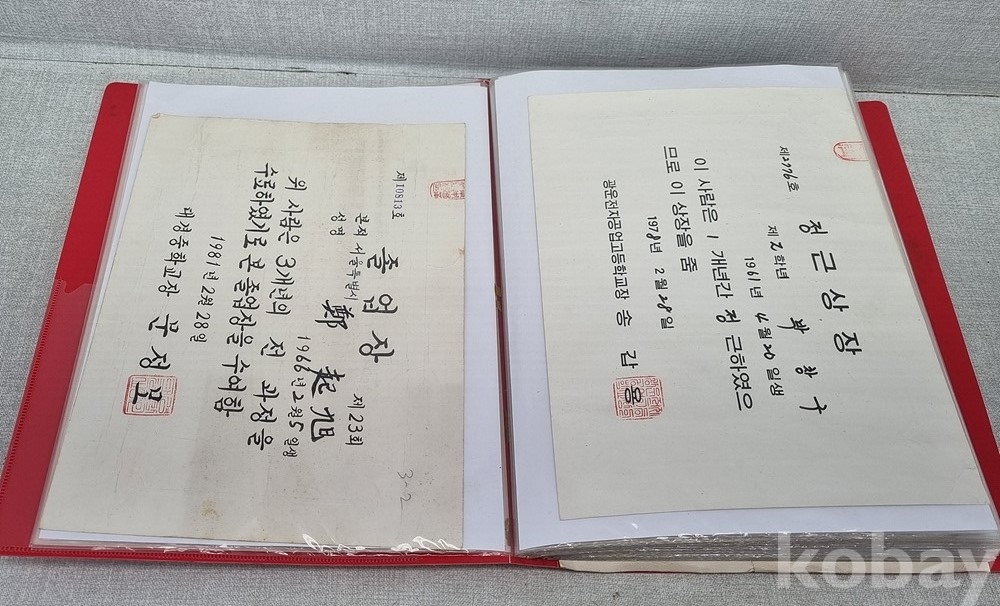 제10813호
졸업장
제23회
본적 서울특별시
성명 鄭起旭
1966년 2월 5일생
위 사람은 3개년의 전 과정을
수료하였기로 본 졸업장을 수여함
1981년 2월 28일
대경중학교장 문정모
3-2
제2776호
정근상장
제2학년 박창구
1961년 4월 20일생
이 사람은 1 개년간 정근하였으
므로 이 상장을 줌
1978년 2월 28일
광운전자공업고등학교장 송갑용
kobay